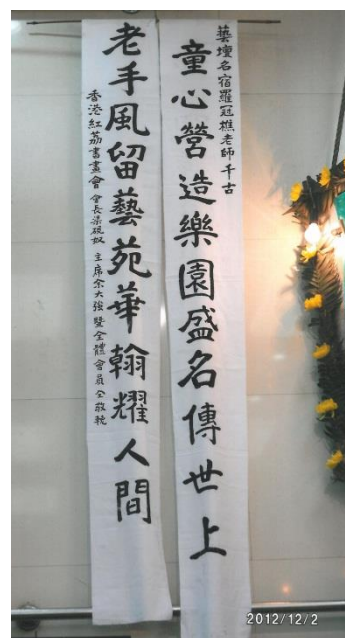 藝壇名宿羅冠樵老師千古
童心營造樂園盛名傳世上
老手風留藝苑華翰耀人間
香港紅荔書畫會 會長梁硯奴 主席余大強 暨全體會員仝敬輓
2012/12/2